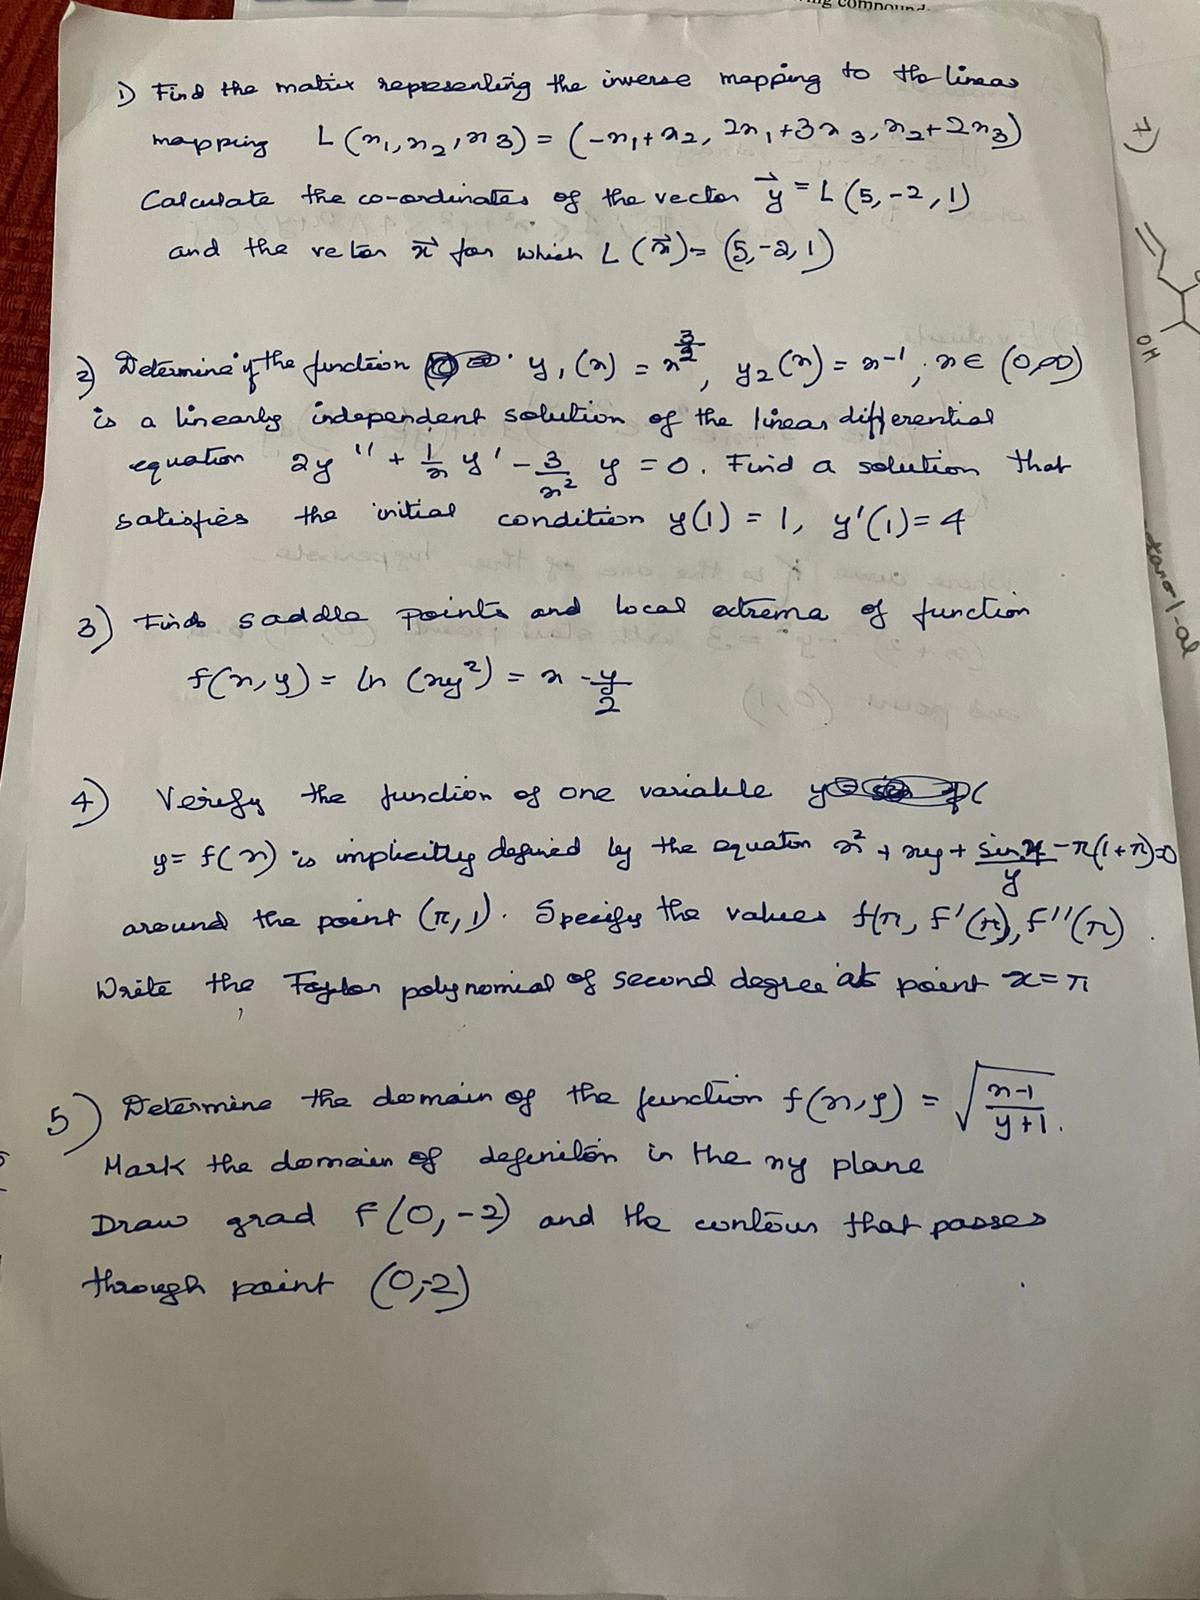 ing compound
1) Find the matrix representing the inverse mapping to the linear
mapping L(x₁, x₂, x₃) = (-x₁ + x₂, 2x₁ + 3x₃, x₂ + 2x₃)
Calculate the co-ordinates of the vector y⃗ = L (5, -2, 1)
and the vector x⃗ for which L (x⃗) = (5, -2, 1)
2) Determine if the function y₁(x) = x^(3/2), y₂(x) = x⁻¹, x ∈ (0, ∞)
is a linearly independent solution of the linear differential
equation 2y'' + 1/x y' - 3/x² y = 0. Find a solution that
satisfies the initial condition y(1) = 1, y'(1) = 4
3) Find saddle points and local extrema of function
f(x, y) = ln (xy²) = x - y/2
4) Verify the function of one variable y
y = f(x) is implicitly defined by the equation x² + xy + sin x/y - π(1 + π) = 0
around the point (π, 1). Specify the values f(π, f'(π), f''(π)
Write the Taylor polynomial of second degree at point x = π
5) Determine the domain of the function f(x, y) = √((x-1)/(y+1)).
Mark the domain of definition in the xy plane
Draw grad f(0, -2) and the contour that passes
through point (0, -2)
7)
OH
tanol-al